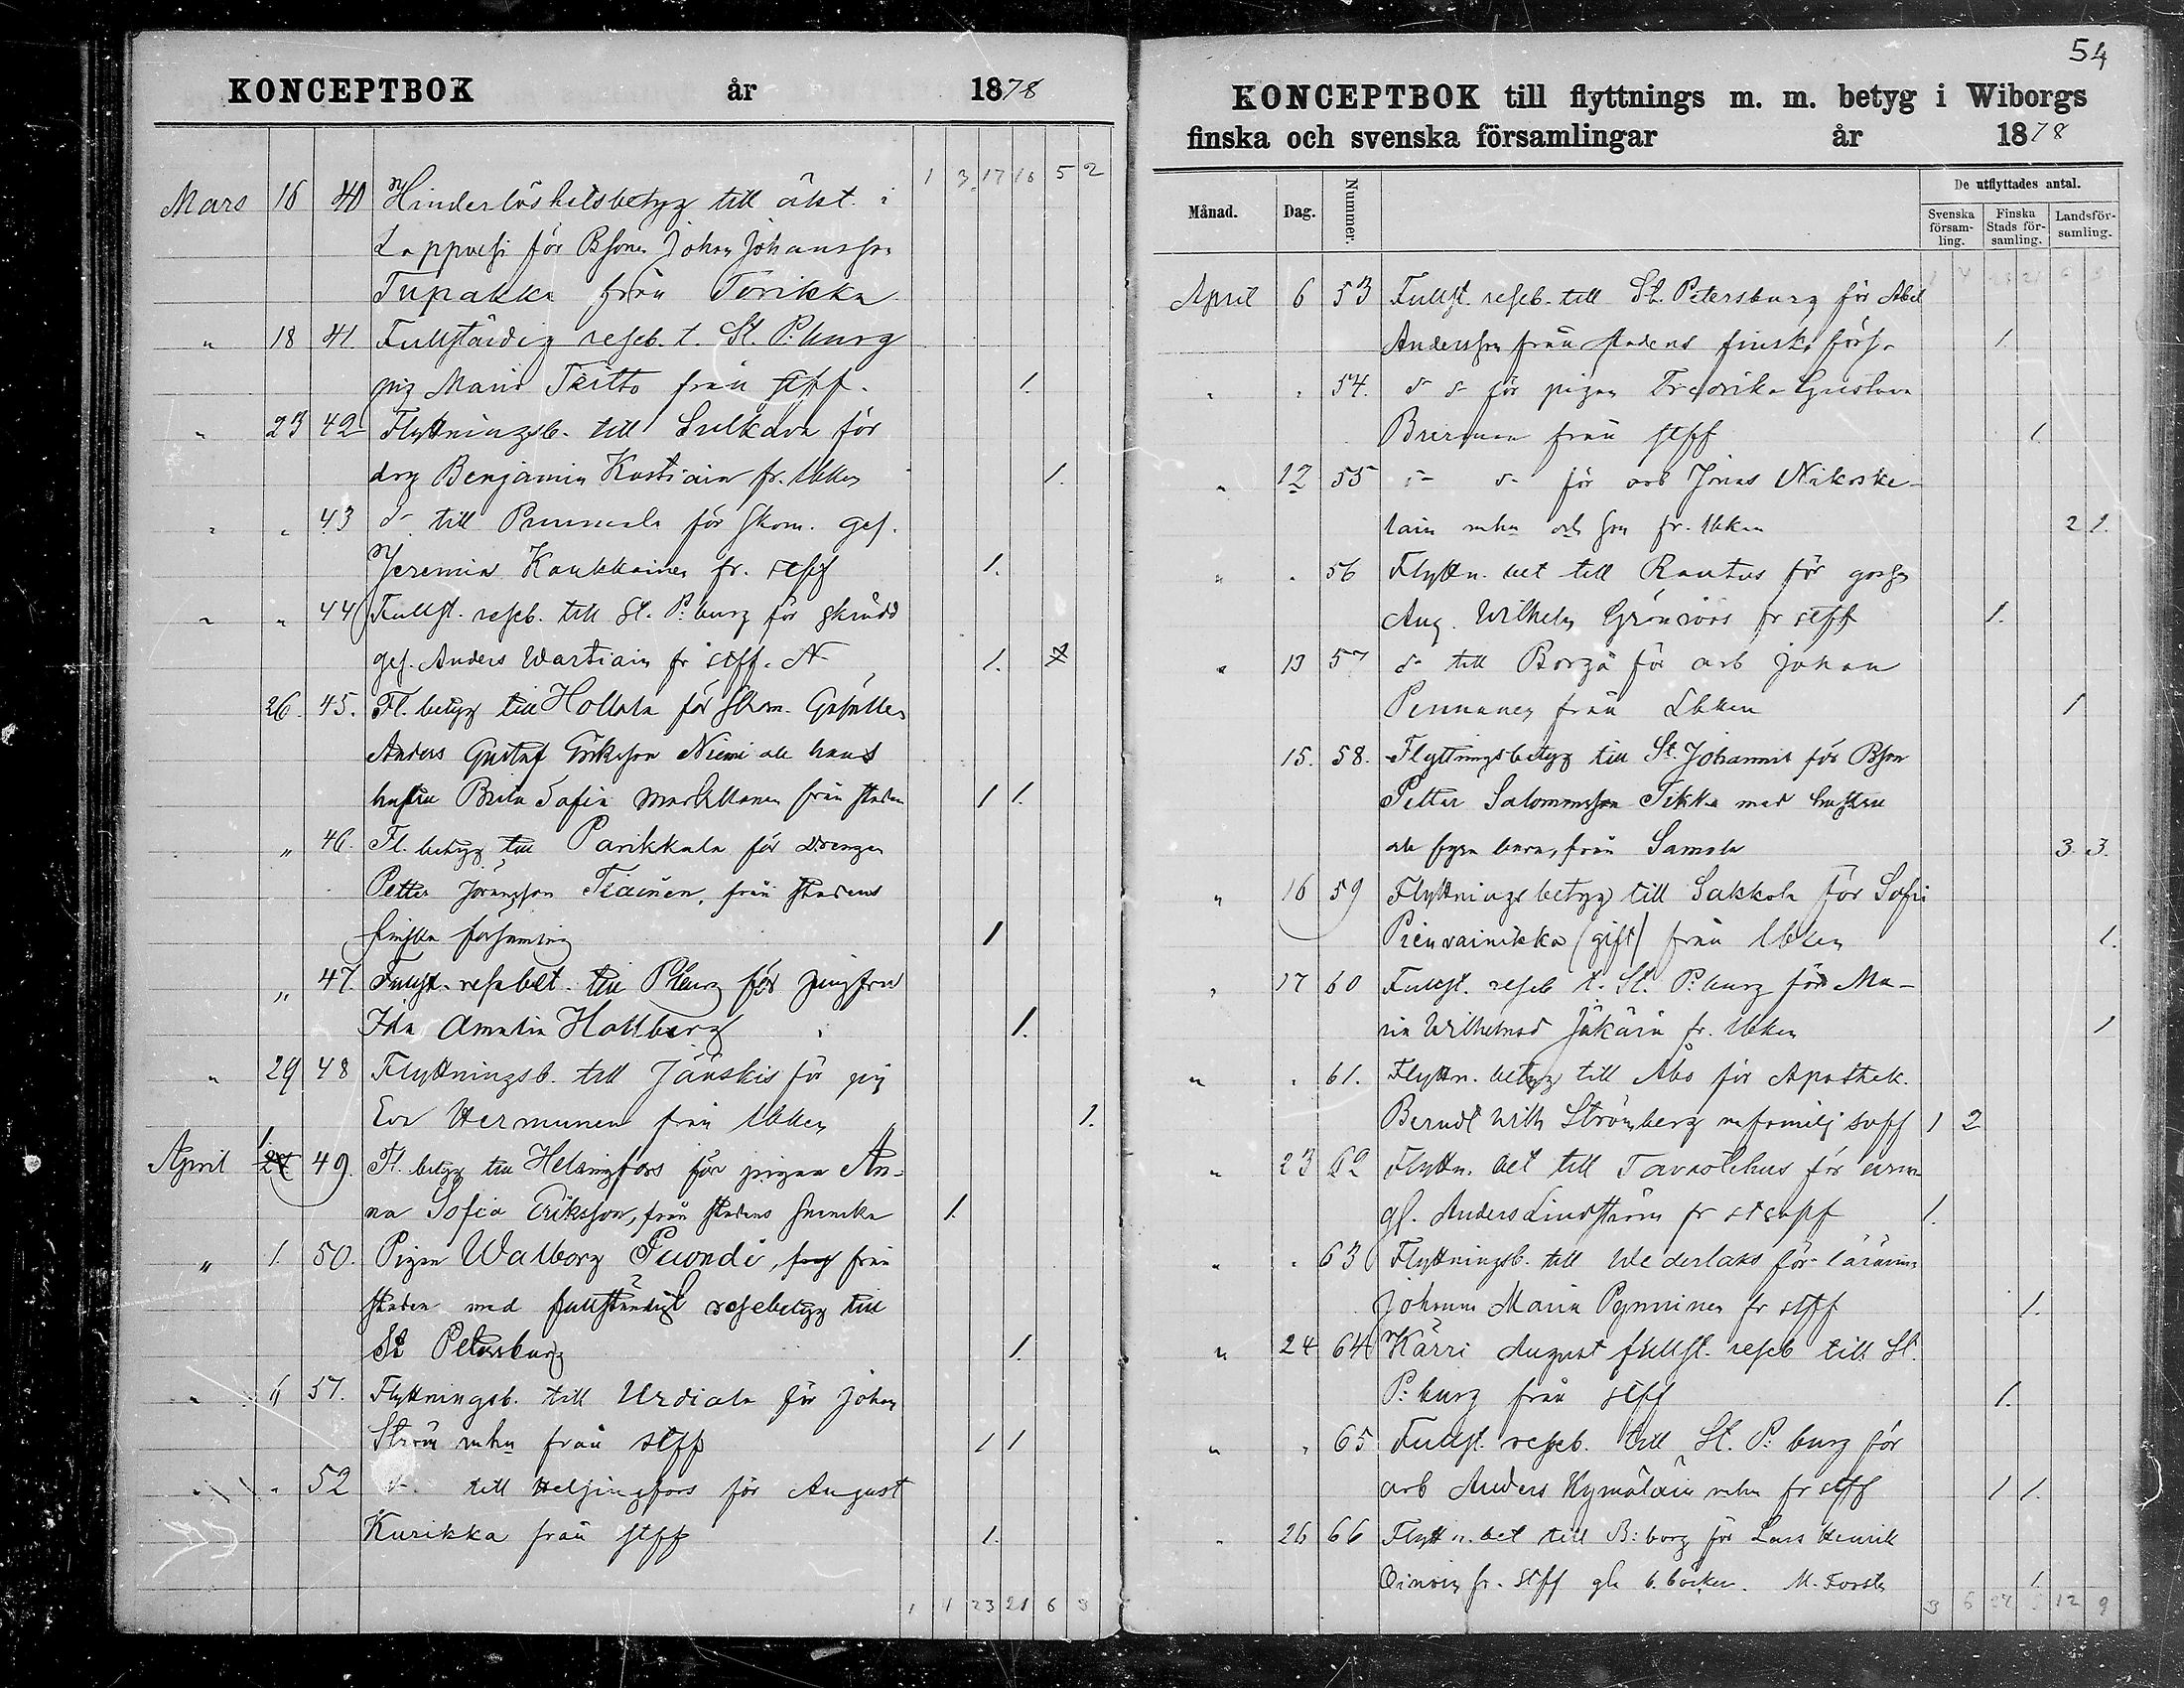 KONCEPTBOK år 1878
1 3 17 16 5 2
Mars 16 40 Hinderlöshetsbetyg till äkt. i
Lappvesi för Bsonen Johan Johansson
Tupakka från Torikka
" 18 41. Fullständig reseb. t. St. P:burg
pig Maria Teitto från stff. 1.
" 23 42 Flyttningsb. till Sulkava för
drg Benjamin Kostiain fr. lkken 1.
" " 43 d- till Pummala för skom. ges.
Jeremias Kaukkainen fr. stff 1.
" " 44 Fullst. reseb. till St. P:burg för skrädd
ges. Anders Wartiain fr stff. 1.
26. 45. Fl. betyg till Hollola för skom. Gesällen
Anders Gustaf Eriksson Niemi och hans
hustru Brita Sofia Markkanen från staden 1 1.
" 46. Fl. betyg till Parikkala för drengen
Petter Göransson Tiainen, från stadens
finska församling 1
" 47. Fullst. resebet. till P:burg för jungfrun
Ida Amalia Hallberg 1.
" 29 48 Flyttningsb. till Jääskis för pig
Eva Hermunen från lkken 1.
April 1. 49. Fl. betyg till Helsingfors för pigan An-
na Sofia Eriksson, från stadens svenska 1.
" 1. 50. Pigan Walborg Suondi, från
staden med fullständigt resebetyg till
St Petersburg 1.
" " 51. Flyttningsb. till Urdiala för Johan
Ström mhu från stff 1 1
" " 52 d- till Helsingfors för August
Kurikka från stff 1.
1 4 23 21 6 3
54
KONCEPTBOK till flyttnings m. m. betyg i Wiborgs
finska och svenska församlingar år 1878
Månad. Dag. Nummer. De utflyttades antal.
Svenska församling. Finska Stads församling. Landsförsamling.
April 6 53 Fullst. reseb. till St. Petersburg för Abel
Andersson från stadens finska förs. 1.
" " 54. d- d- för pigan Fredrika Gustava
från stff 1.
" 12 55 d- d- för arb Jonas Nikoske-
lain mhu och son fr. lkken 2 1.
" " 56 Flyttn. bet till Rautus för gossen
Aug. Wilhelm Grönroos fr stff 1.
" 13 57 d- till Borgå för arb Johan
Pennanen från Lkken 1
15. 58. Flyttningsbetyg till St. Johannis för Bson
Petter Salomonsson Tikka med hustru
och fyra barn, från Samola 3. 3.
" 16 59 Flyttningsbetyg till Sakkola för Sofia
Pienrainikka (gift) från lkken 1.
" 17 60 Fullst. reseb t. St. P:burg för Ma-
ria Wilhelmsd Jäkäin fr. lkken 1
" " 61. Flyttn. betyg till Åbo för Apothek.
Berndt Wilh Strömberg m familj svff 1 2
" 23 62 Flyttn. bet till Tavastehus för
gs. Anders Lindström fr stsvff 1.
" " 63 Flyttningsb. till Wederlaks för lärarin
Johanna Maria Pynninen fr stff 1.
" 24 64 Kärri August fullst. reseb till St.
P:burg från stff 1.
" " 65 Fullst. reseb. till St. P:burg för
arb Anders Kymäläin mhu fr stff 1 1.
" 26 66 Flyttn. bet till B:borg för Lars Henrik
Oinoin fr. stff gla b. böcken. M. Forstn 1.
3 6 27 12 9